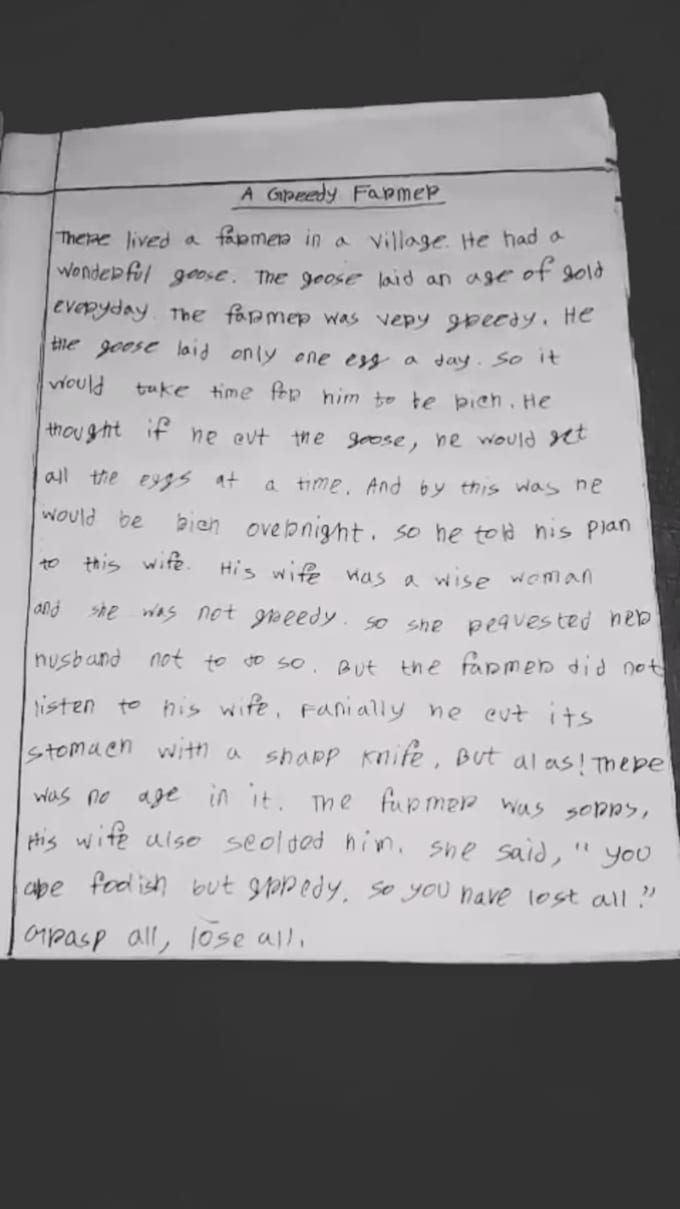 A Greedy Farmer
There lived a farmer in a village. He had a
wonderful goose. The goose laid an age of gold
everyday. The farmer was very greedy. He
the goose laid only one egg a day. So it
would take time for him to be rich. He
thought if he cut the goose, he would get
all the eggs at a time. And by this was he
would be rich overnight. So he told his plan
to this wife. His wife was a wise woman
and she was not greedy. So she requested her
husband not to do so. But the farmer did not
listen to his wife. Fanially he cut its
stomach with a sharp knife. But alas! There
was no age in it. The farmer was sorry,
His wife also scolded him. She said, "you
are foolish but greedy. So you have lost all."
Grasp all, lose all.